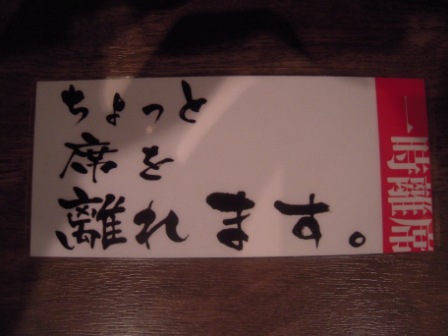 ちょっと
席を
離れます。
一時離席